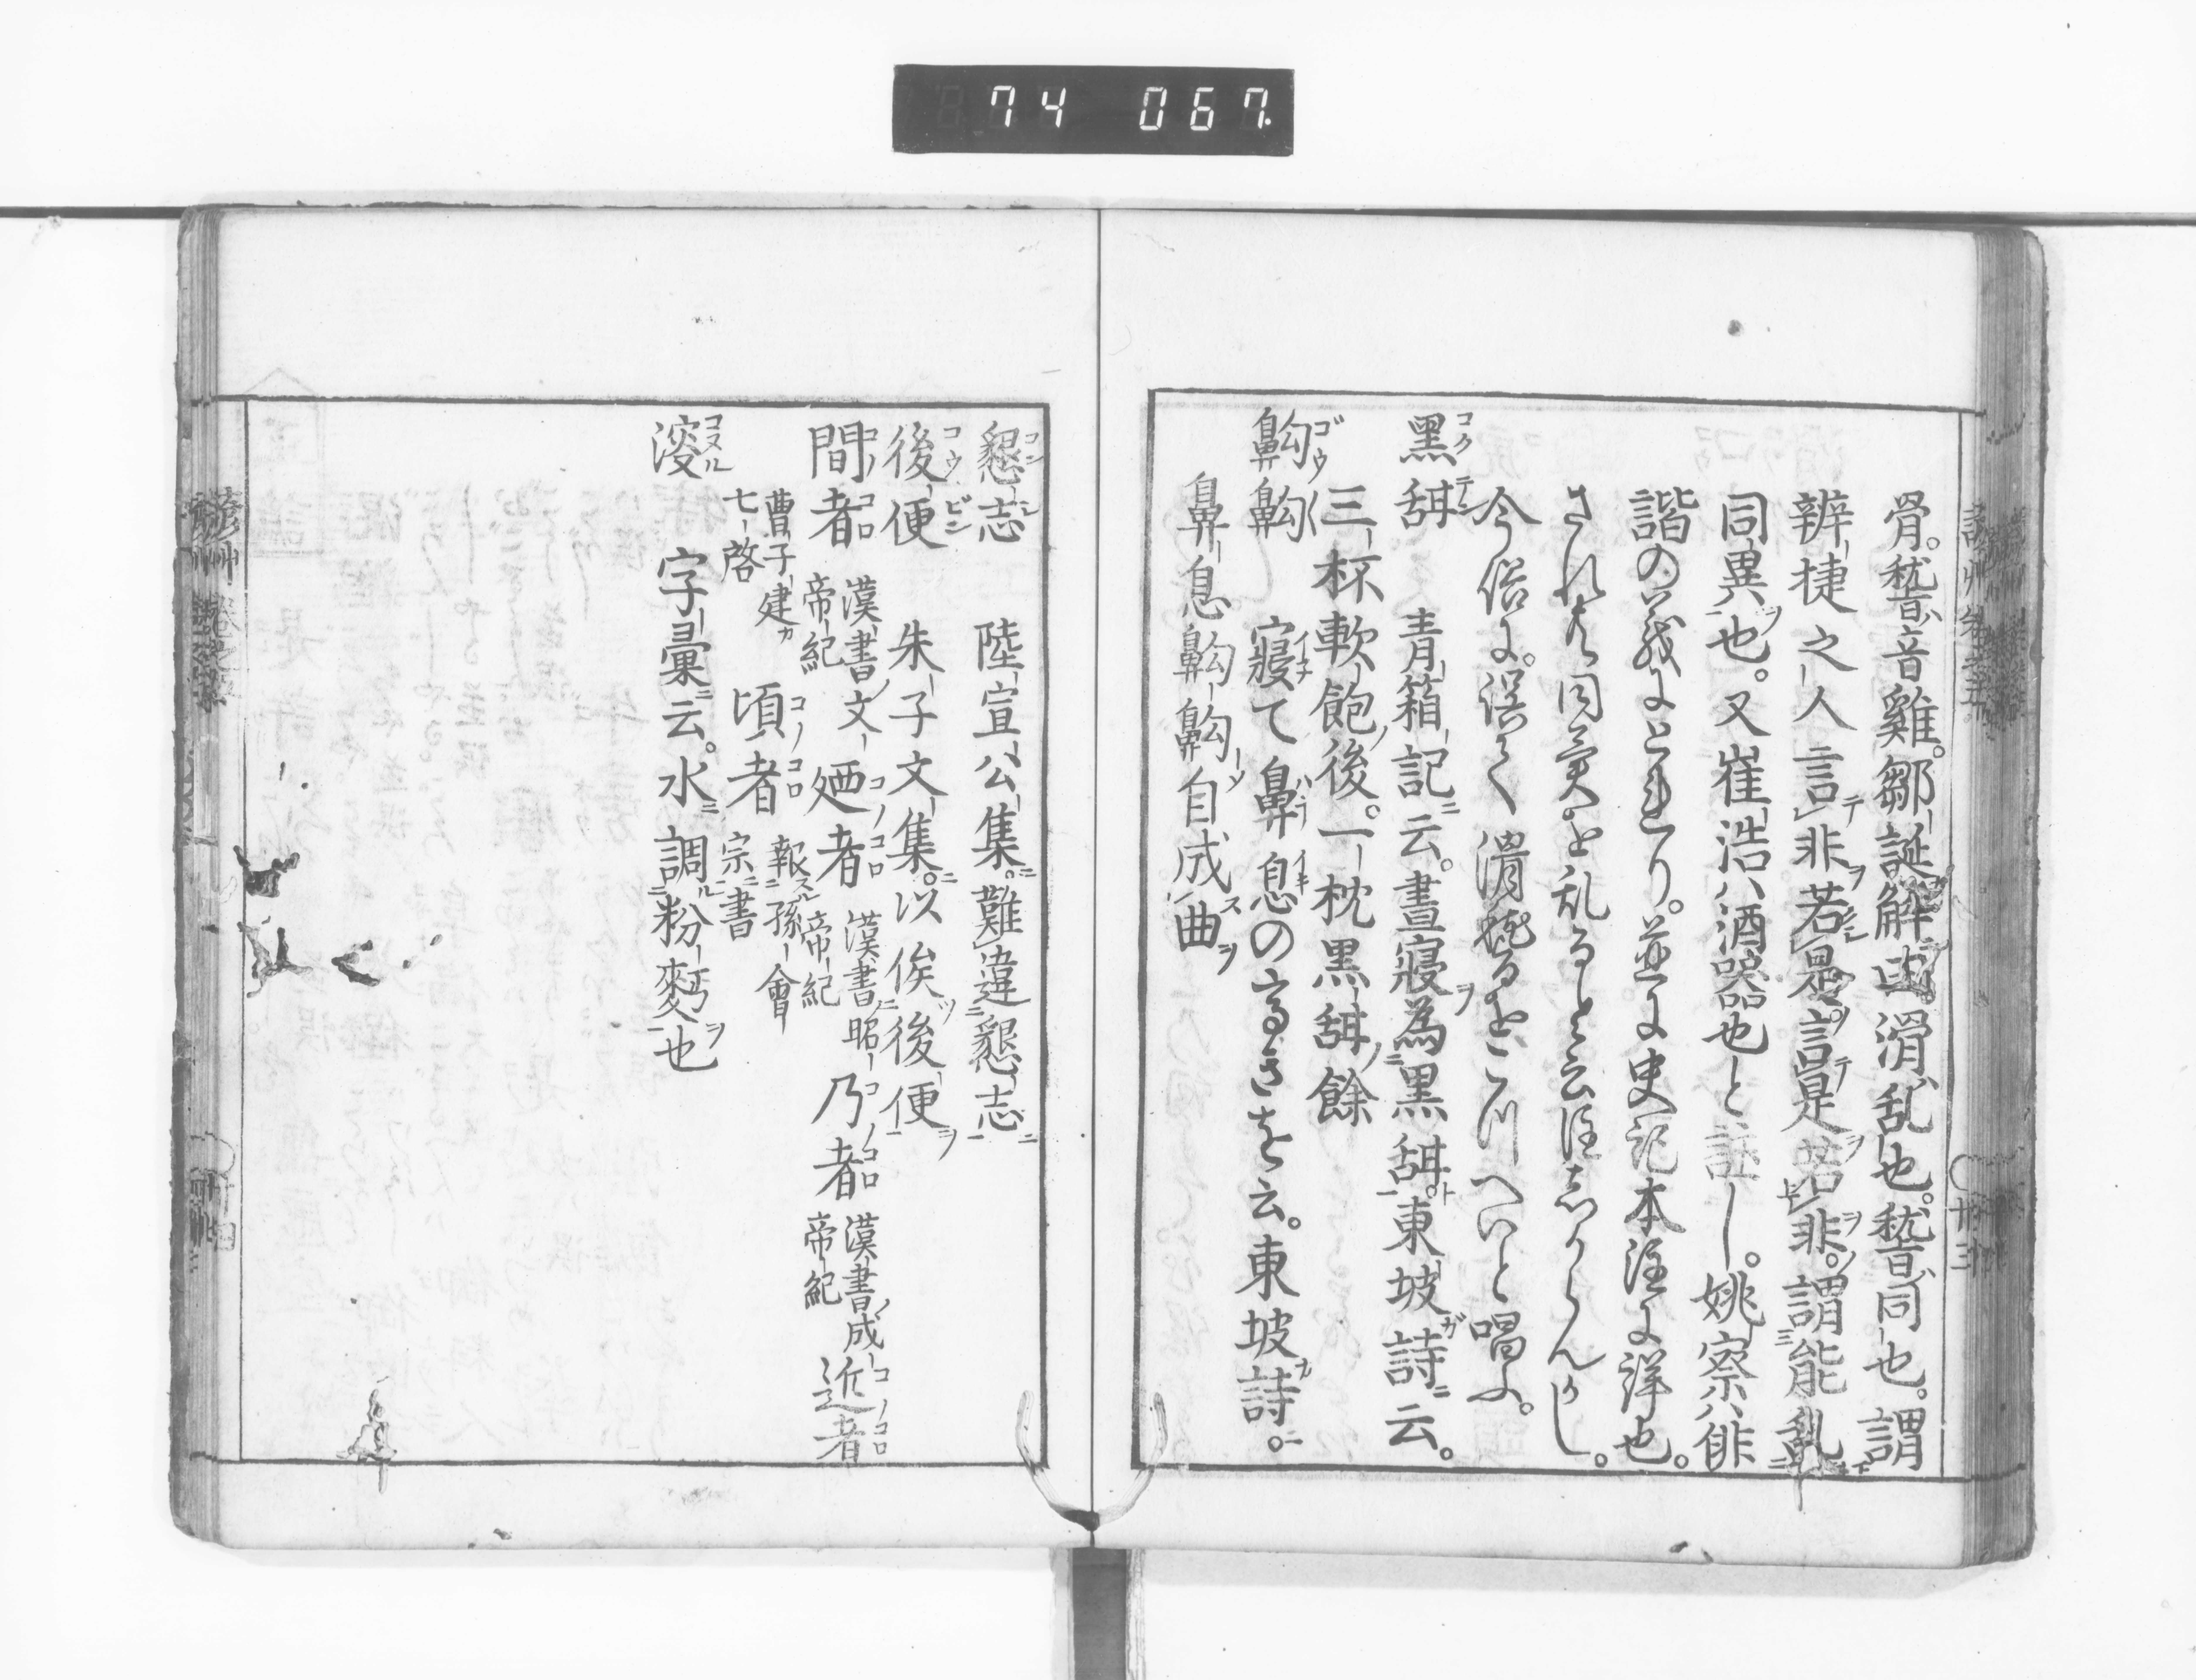 74 067.
骨。嵆音雞。鄒誕解云。滑ハ乱也。嵆ハ同也。謂
辨捷之人言非若是。言是若非。謂能乱
同異也。又崔浩ハ酒器也と註し。姚察ハ俳
諧の義によれり。並に史記本注に詳也。
されは同異を乱ると云注志かるへし。
今俗に。誤て滑嵆るをこつけいと唱ふ。
黒甜 青箱記云。晝寢為黒甜。東坡詩云。
三杯軟飽後。一枕黒甜餘
齁齁 寢て鼻息の高きを云。東坡詩。
鼻息齁齁自成曲
懇志 陸宣公集。難違懇志
後便 朱子文集。以俟後便
間者 漢書文帝紀 廼者 漢書昭帝紀 乃者 漢書成帝紀 近者
曹子建七啓 頃者 報孫會宗書
溲 字彙云。水調粉麪也